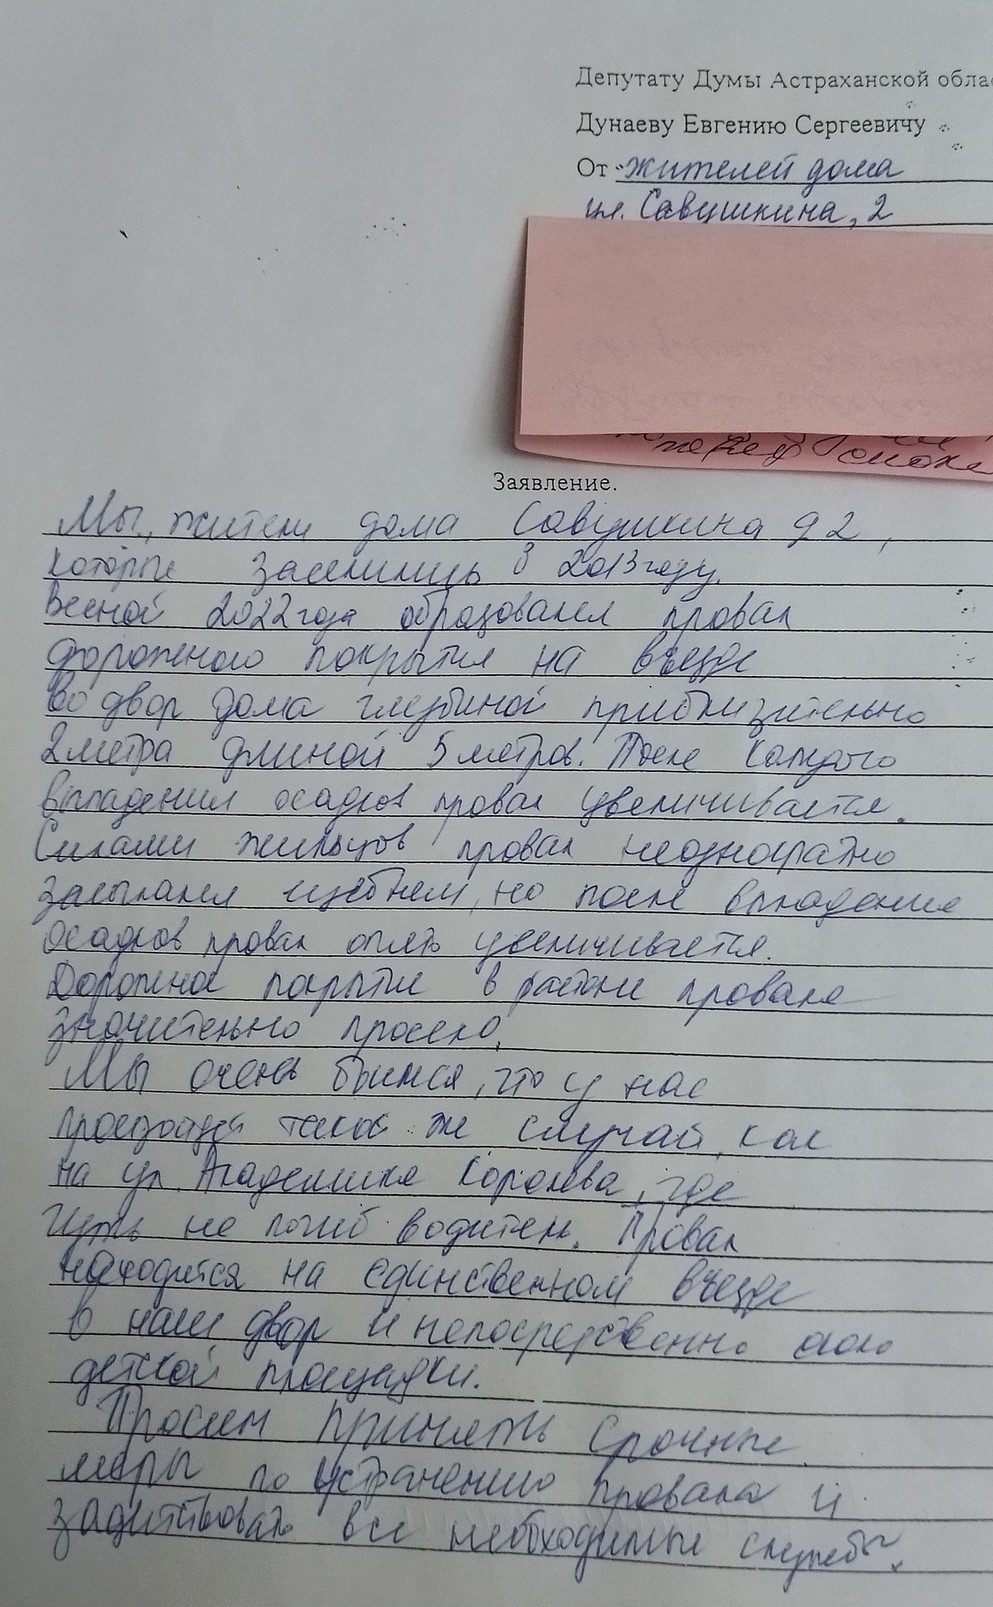 Депутату Думы Астраханской обла
Дунаеву Евгению Сергеевичу
От жителей дома
ул. Савушкина, 2
Заявление.
Мы, жители дома Савушкина д 2,
которые заселились в 2013 году.
Весной 2022 года образовался провал
дорожного покрытия на въезде
во двор дома глубиной приблизительно
2 метра длиной 5 метров. После каждого
выпадения осадков провал увеличивается.
Силами жильцов провал неоднократно
засыпался щебнем, но после выпадения
осадков провал опять увеличивается.
Дорожное покрытие в районе провала
значительно просело.
Мы очень боимся, что у нас
произойдет такой же случай, как
на ул. Академика Королева, где
чуть не погиб водитель. Провал
находится на единственном въезде
в наш двор и непосредственно около
детской площадки.
Просим принять срочные
меры по устранению провала и
задействовать все необходимые службы.